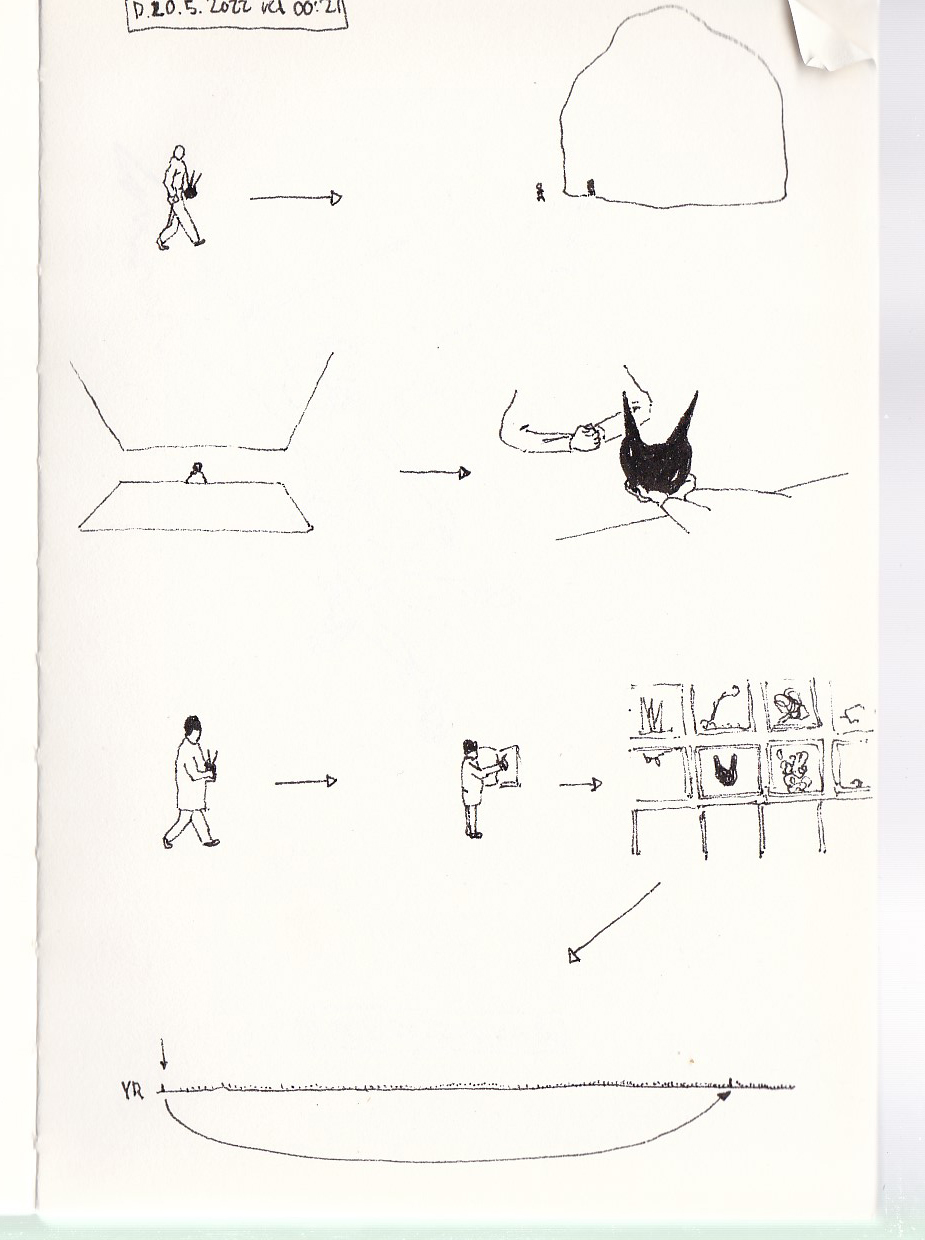 D.20.5.2022 kl 00:21
YR